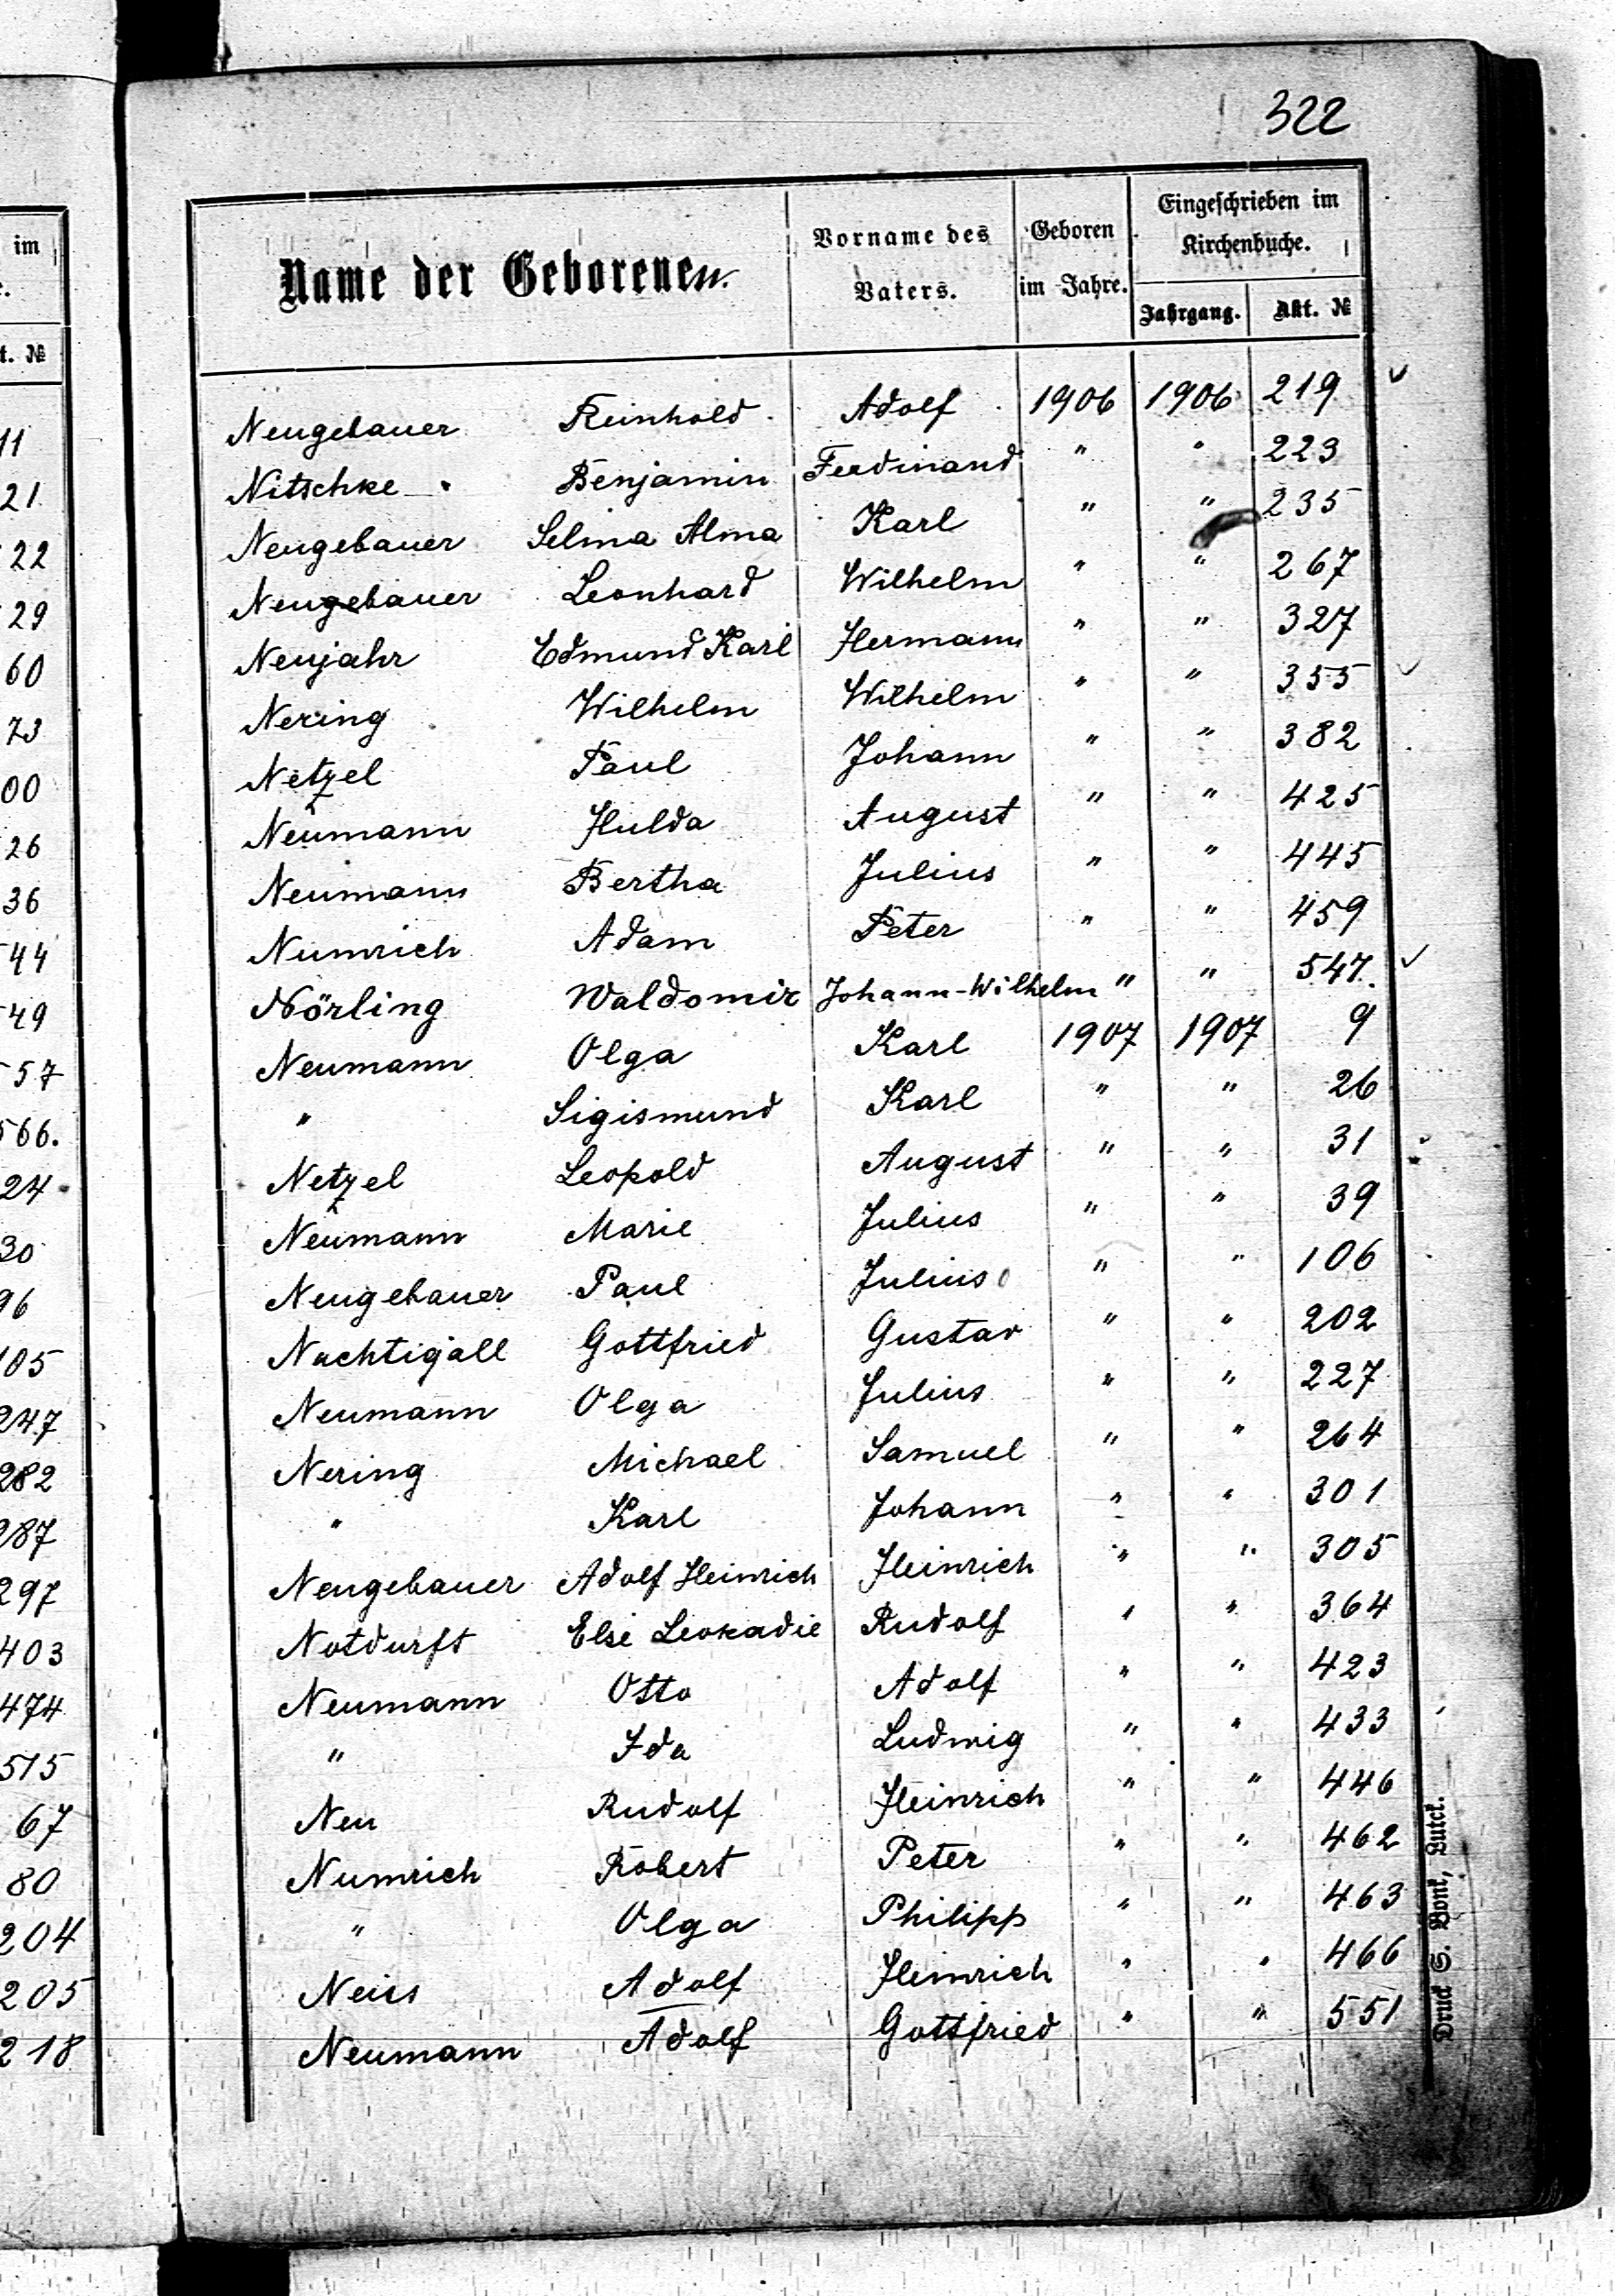 im
e.
t. №
11
21
22
29
60
73
00
26
36
44
49
57
566.
24
30
96
105
247
282
287
297
403
474
515
67
80
204
205
218
322
Name der Geborenen. Vorname des Vaters. Geboren im Jahre. Eingeschrieben im Kirchenbuche.
Jahrgang. Akt. №
Neugebauer Reinhold Adolf 1906 1906 219 ✓
Nitschke Benjamin Ferdinand " " 223
Neugebauer Selma Alma Karl " " 235
Neugebauer Leonhard Wilhelm " " 267
Neujahr Edmund Karl Hermann " " 327
Nering Wilhelm Wilhelm " " 355 ✓
Netzel Paul Johann " " 382
Neumann Hulda August " " 425
Neumann Bertha Julius " " 445
Numrich Adam Peter " " 459
Nörling Waldomir Johann-Wilhelm " " 547. ✓
Neumann Olga Karl 1907 1907 9
" Sigismund Karl " " 26
Netzel Leopold August " " 31
Neumann Marie Julius " " 39
Neugebauer Paul Julius " " 106
Nachtigall Gottfried Gustav " " 202
Neumann Olga Julius " " 227
Nering Michael Samuel " " 264
" Karl Johann " " 301
Neugebauer Adolf Heinrich Heinrich " " 305
Notdurft Else Leokadie Rudolf " " 364
Neumann Otto Adolf " " 423
" Ida Ludwig " " 433
Neu Rudolf Heinrich " " 446
Numrich Robert Peter " " 462
" Olga Philipp " " 463
Neiss Adolf Heinrich " " 466
Neumann Adolf Gottfried " " 551
Druck S. Bonk, Lutck.